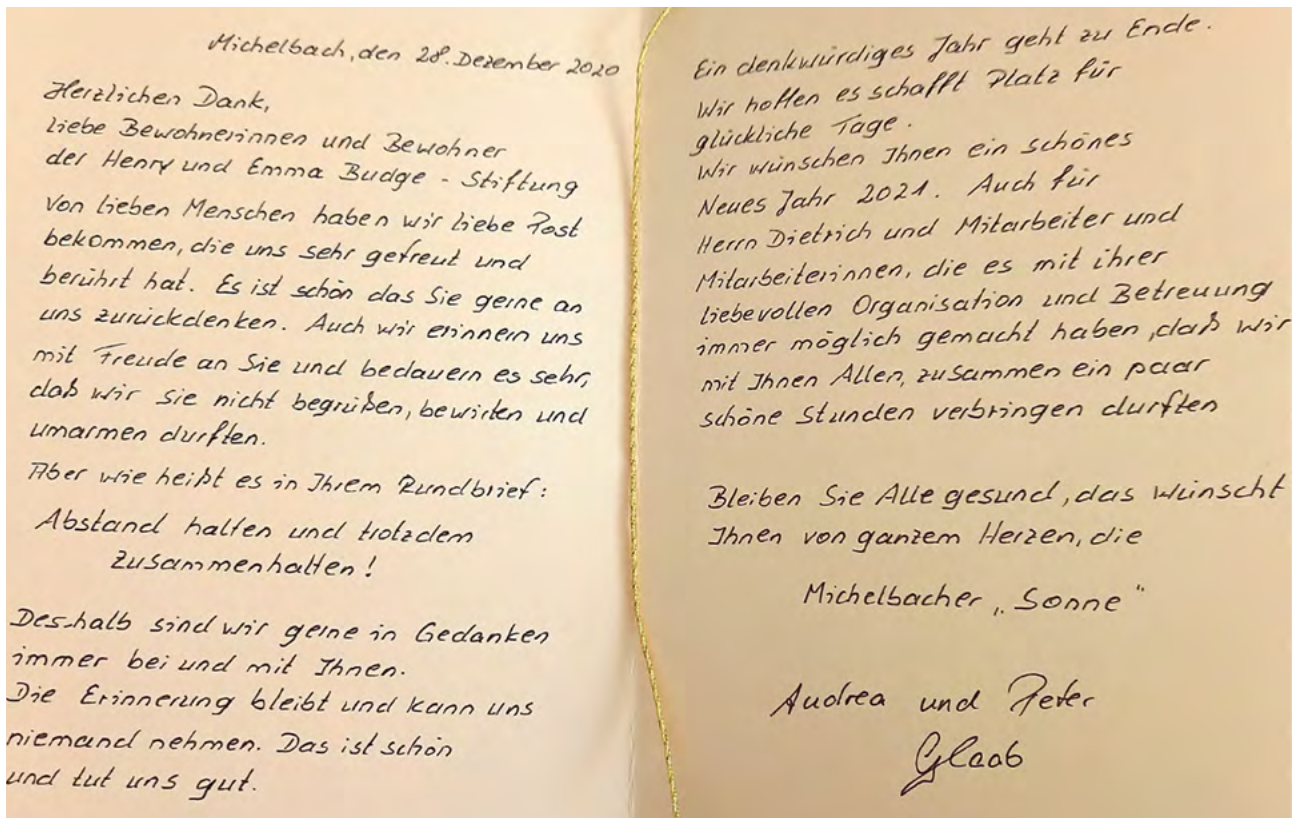 Michelbach, den 28. Dezember 2020
Herzlichen Dank,
liebe Bewohnerinnen und Bewohner
der Henry und Emma Budge - Stiftung
Von lieben Menschen haben wir liebe Post
bekommen, die uns sehr gefreut und
berührt hat. Es ist schön das Sie gerne an
uns zurückdenken. Auch wir erinnern uns
mit Freude an Sie und bedauern es sehr,
daß wir Sie nicht begrüßen, bewirten und
umarmen durften.
Aber wie heißt es in Ihrem Rundbrief:
Abstand halten und trotzdem
zusammenhalten!
Deshalb sind wir gerne in Gedanken
immer bei und mit Ihnen.
Die Erinnerung bleibt und kann uns
niemand nehmen. Das ist schön
und tut uns gut.
Ein denkwürdiges Jahr geht zu Ende.
Wir hoffen es schafft Platz für
glückliche Tage.
Wir wünschen Ihnen ein schönes
Neues Jahr 2021. Auch für
Herrn Dietrich und Mitarbeiter und
Mitarbeiterinnen, die es mit ihrer
liebevollen Organisation und Betreuung
immer möglich gemacht haben, daß wir
mit Ihnen Allen, zusammen ein paar
schöne Stunden verbringen durften
Bleiben Sie Alle gesund, das wünscht
Ihnen von ganzem Herzen, die
Michelbacher „Sonne"
Andrea und Peter
Glaab